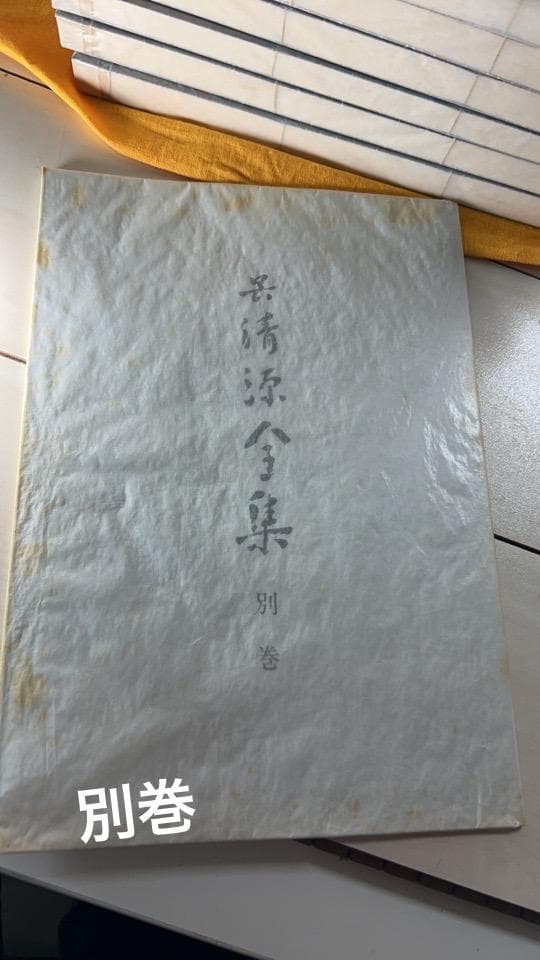 呉清源全集
別巻
別巻